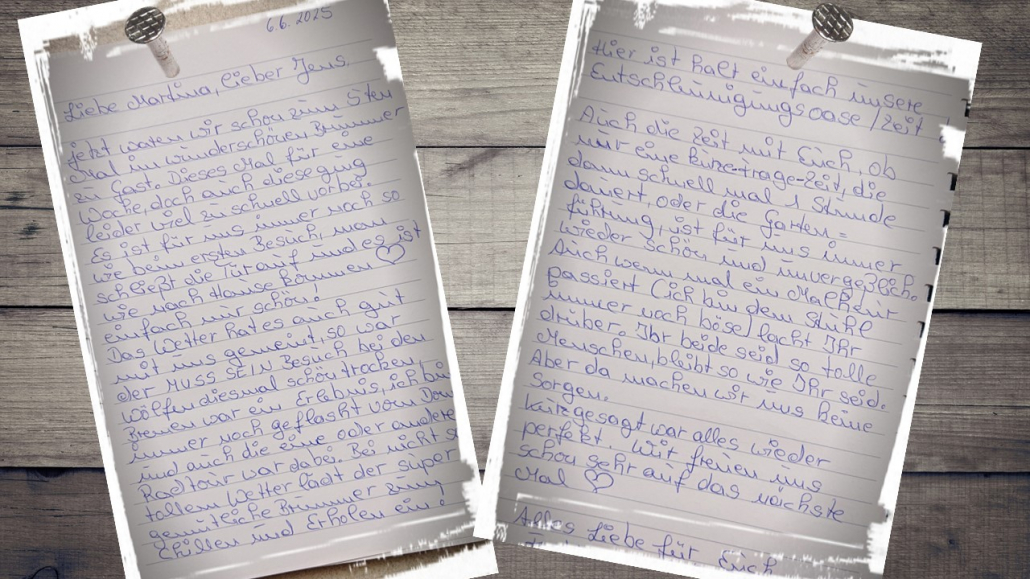 6.6.2025
Liebe Martina, lieber Jens.
jetzt waren wir schon zum 5ten
Mal im wunderschönen Brümmer
zu Gast. Dieses Mal für eine
Woche, doch auch diese ging
leider viel zu schnell vorbei.
Es ist für uns immer noch so
wie beim ersten Besuch, man
schließt die Tür auf und es ist
wie nach Hause kommen ♡
einfach nur schön!
Das Wetter hat es auch gut
mit uns gemeint, so war
der MUSS SEIN Besuch bei den
Wölfen diesmal schön trocken.
Bremen war ein Erlebnis, ich bin
immer noch geflasht vom Dom
und auch die eine oder andere
Radtour war dabei. Bei nicht so
tollem Wetter lädt der super
gemütliche Brümmer zum
Chillen und Erholen ein!
Hier ist halt einfach unsere
Entschleunigungsoase / zeit!
Auch die Zeit mit Euch, ob
nur eine kurze-Frage-Zeit, die
dann schnell mal 1 Stunde
dauert, oder die Garten=
führung, ist für uns immer
wieder schön und unvergeßlich.
Auch wenn mal ein Malheur
passiert (ich bin dem Stuhl
immer noch böse) lacht Ihr
drüber. Ihr beide seid so tolle
Menschen, bleibt so wie Ihr seid.
Aber da machen wir uns keine
Sorgen.
kurzgesagt war alles wieder
perfekt. Wir freuen uns
schon sehr auf das nächste
Mal ♡
Alles Liebe für
Euch